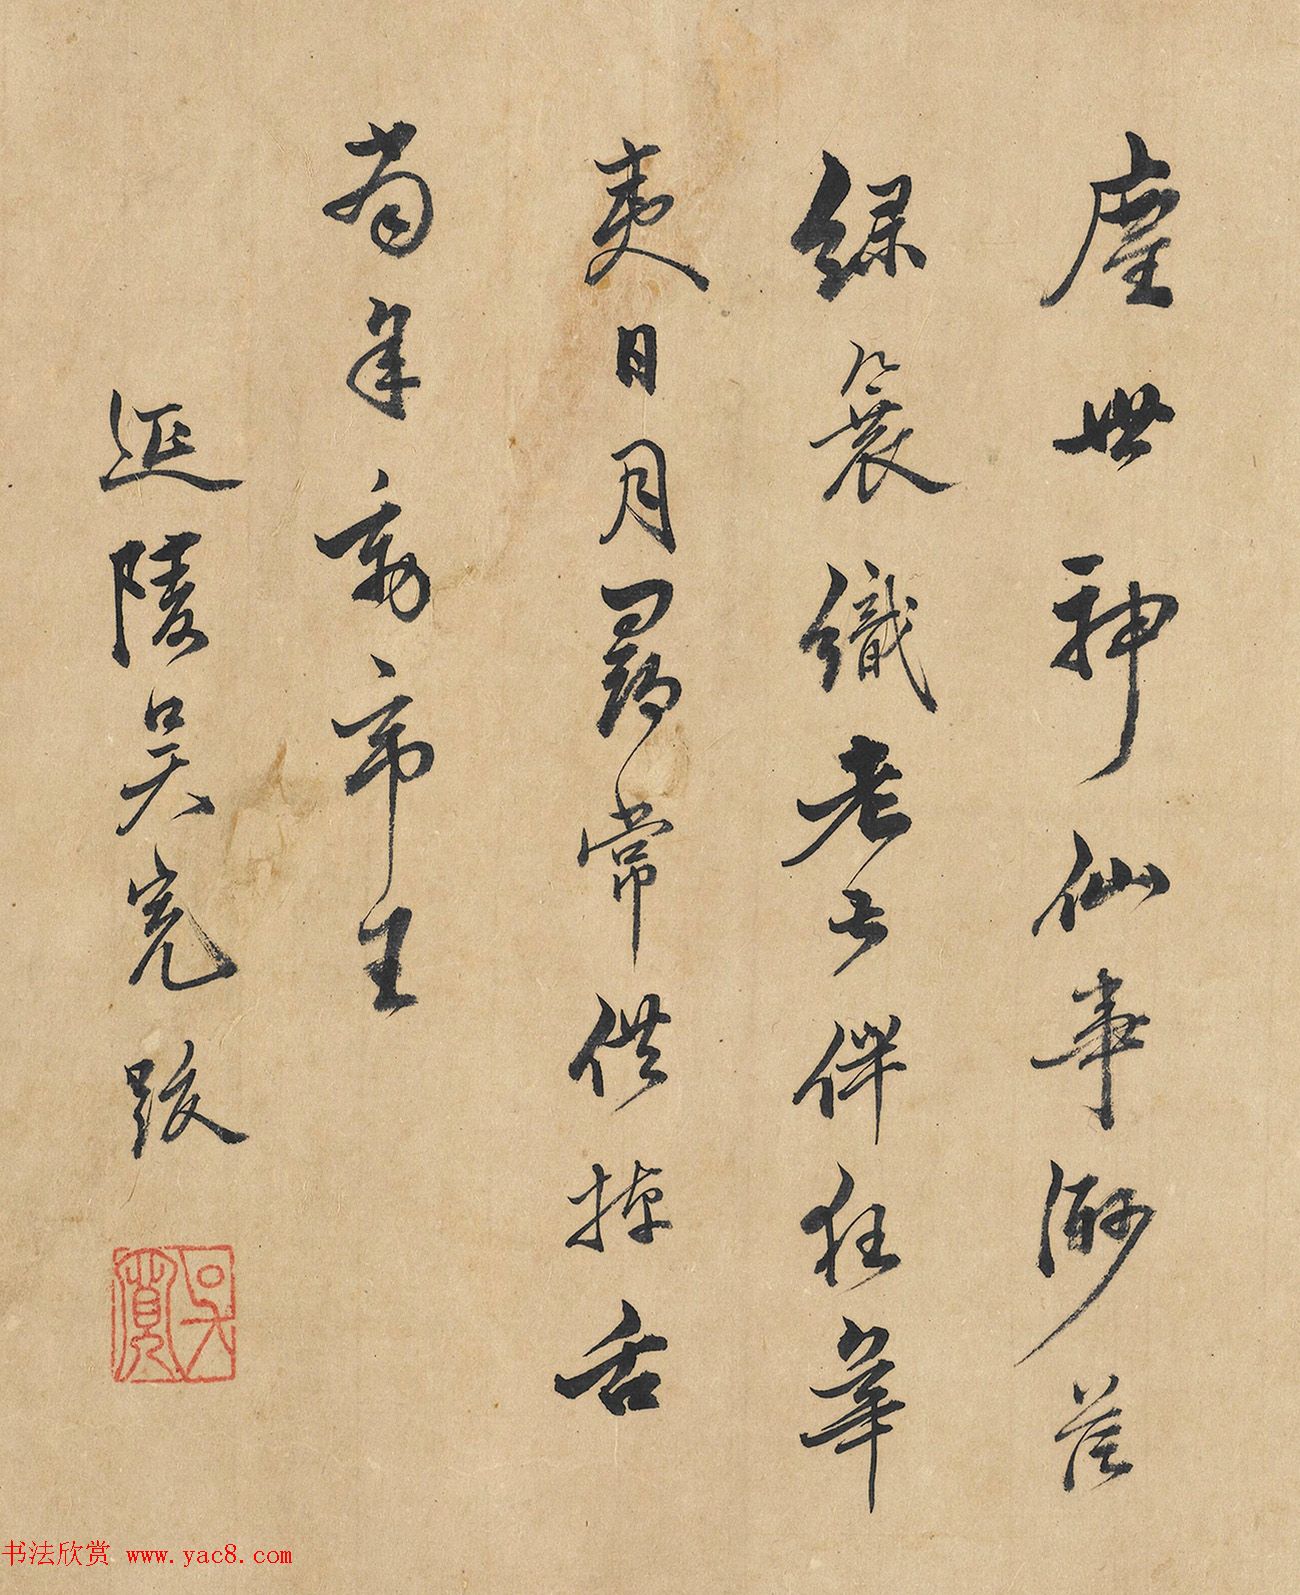 塵世神仙事渺茫
綠蓑織老伴狂華
夷日月尋常供掉舌
當年動帝王
延陵吳寬跋
吳寬
书法欣赏 www.yac8.com